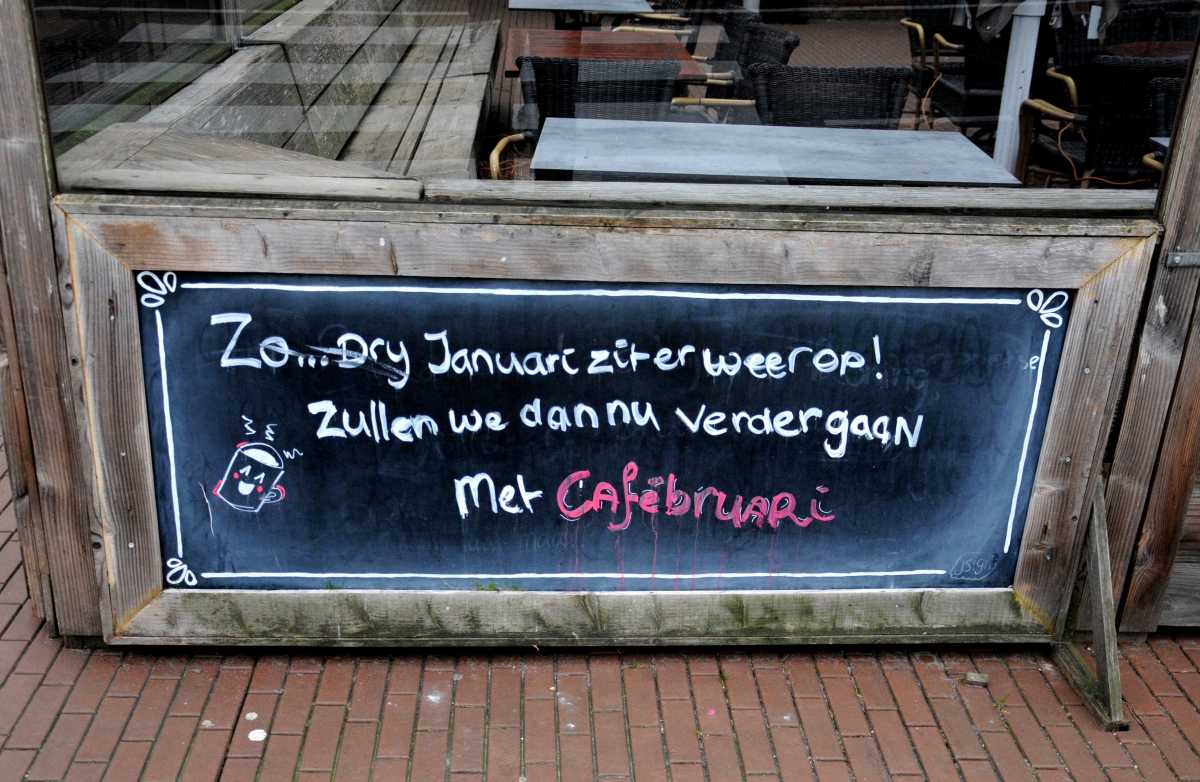 Zo... Dry Januari zit er weer op!
Zullen we dan nu verder gaan
Met Cafébruari